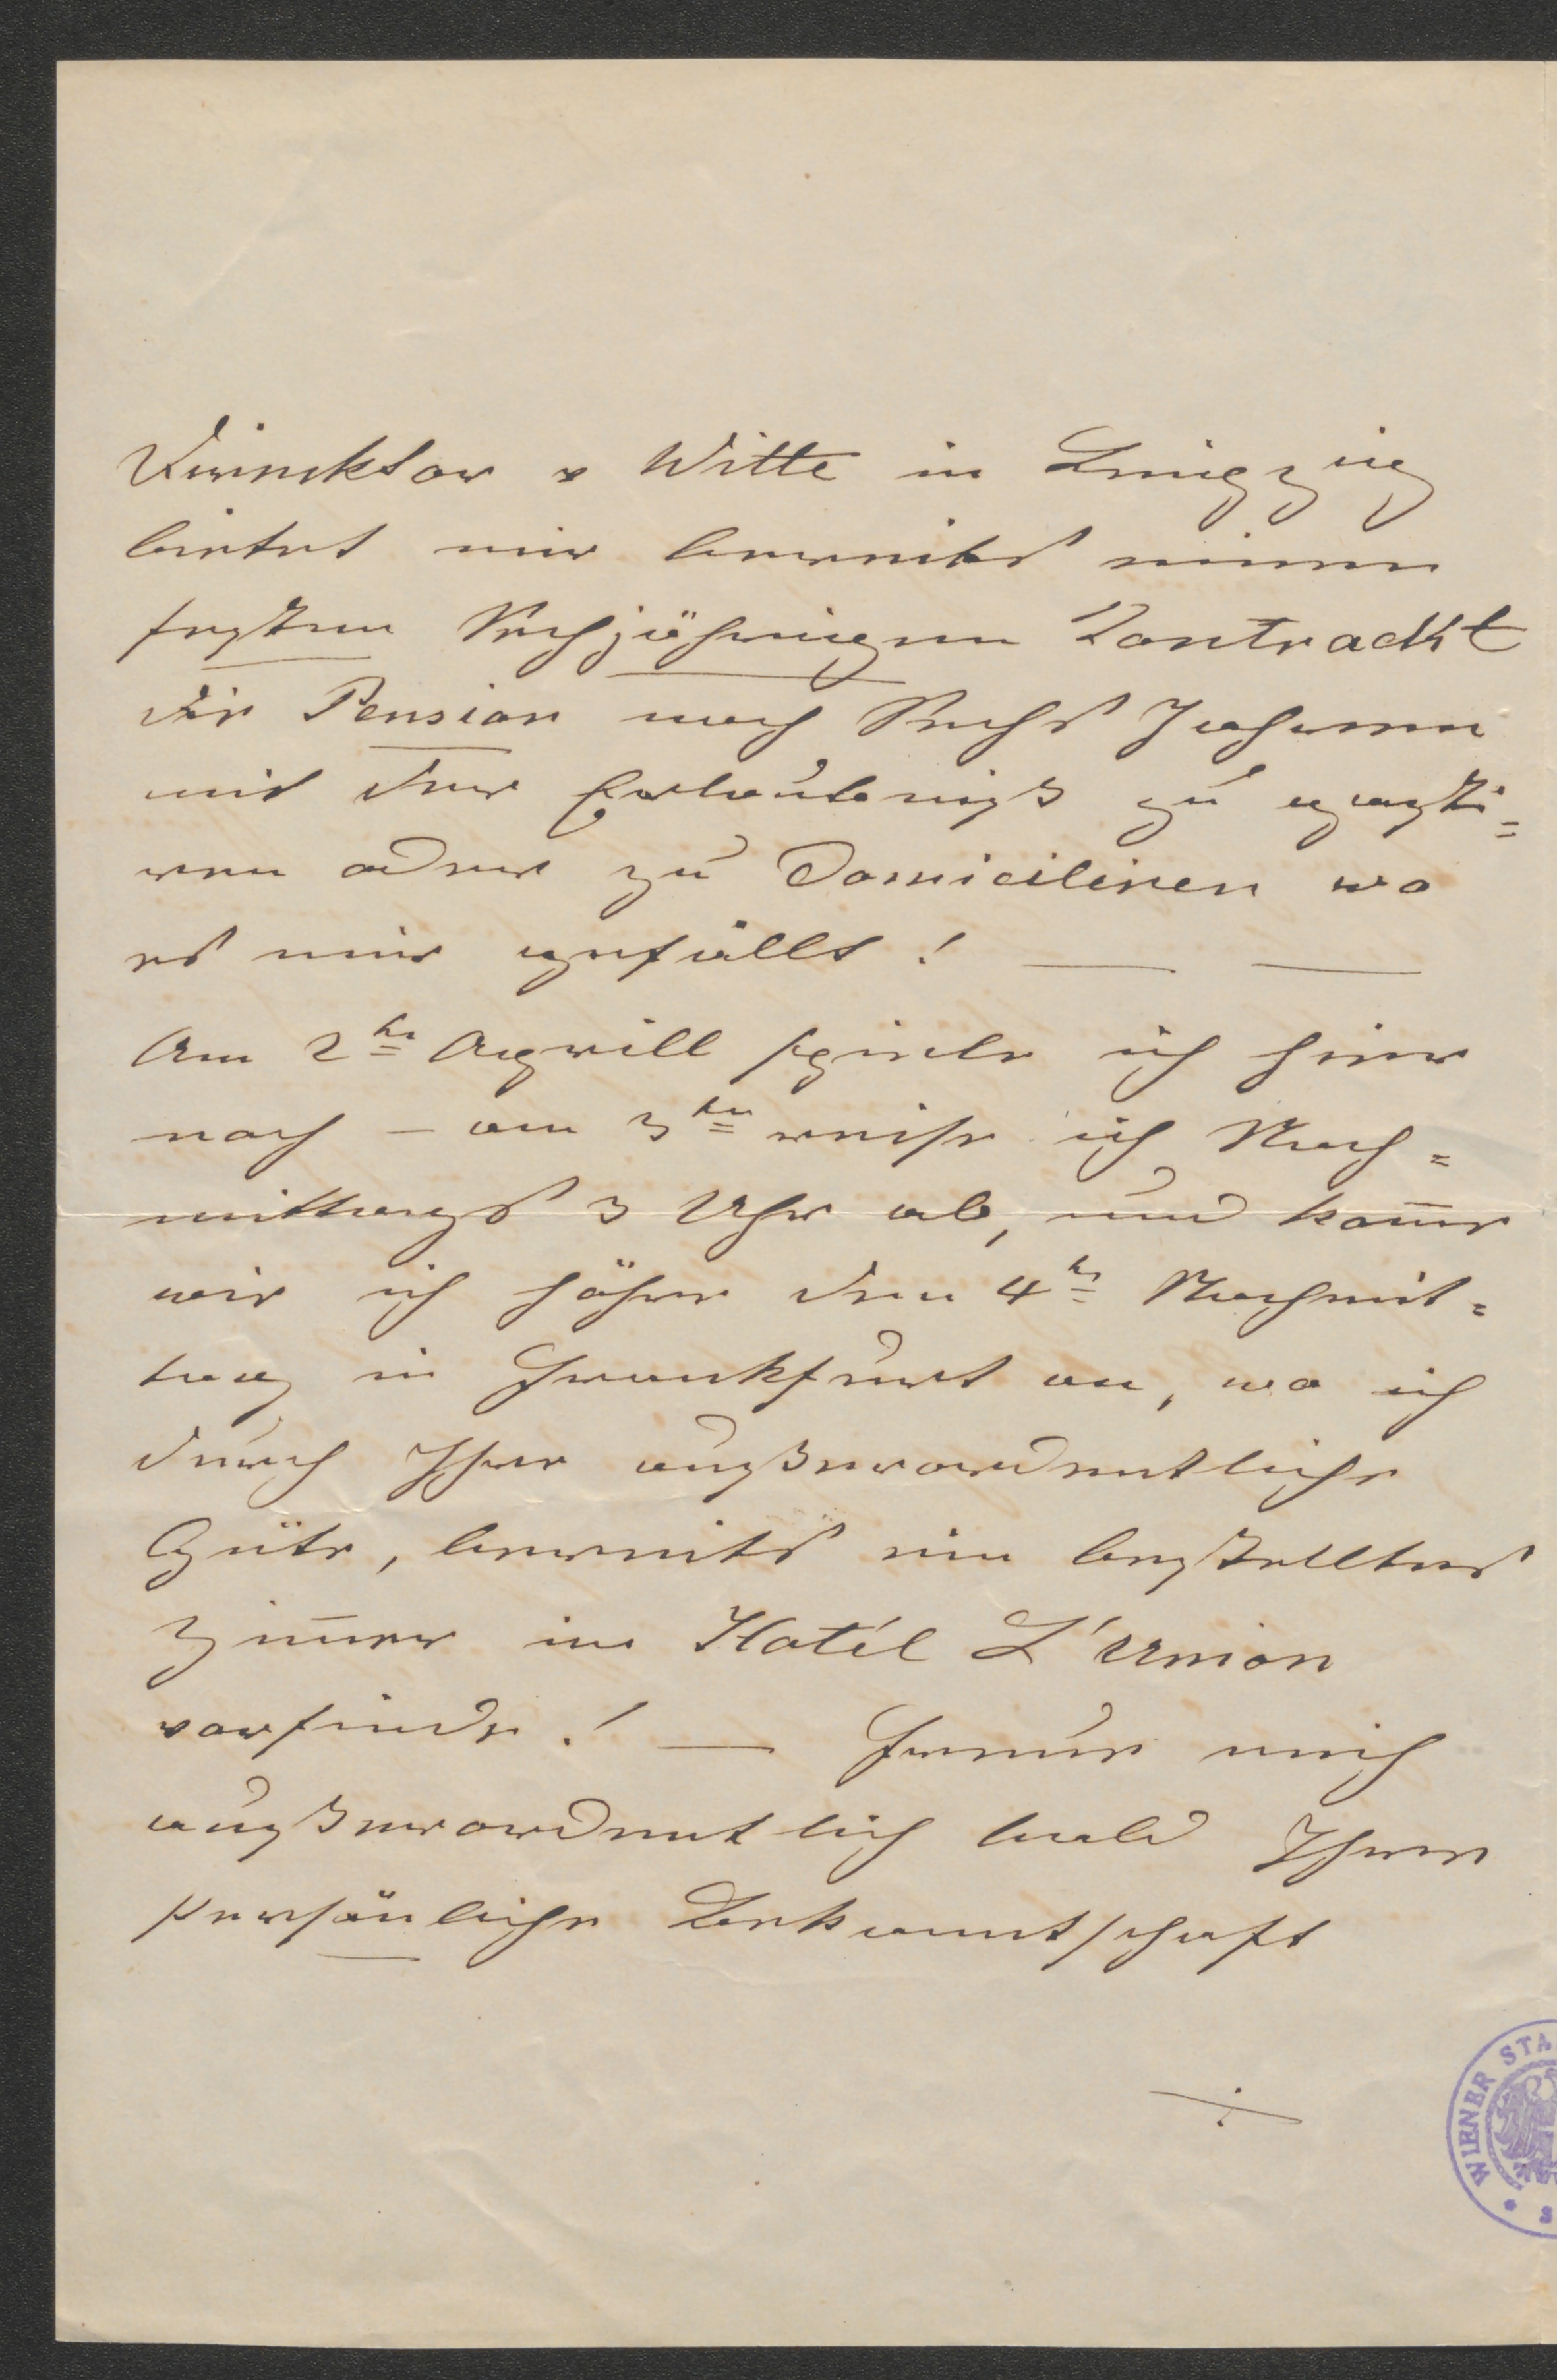 Direcktor v Witte in Leipzig
bietet mir bereits einen
festen Sechjährigen Contrackt
die Pension nach Sechs Jahren
mit der Erlaubniß zu gasti=
ren oder zu Domiciliren wo
es mir gefällt! — —
Am 2tn Aprill spiele ich hier
noch – am 3tn reise ich Nach=
mittags 3 Uhr ab, und kom̄e
wie ich höhre den 4tn Nachmit=
tag in Frankfurt an, wo ich
durch Ihre außerordentliche
Güte, bereits ein bestelltes
Zim̄er im Hotél L'Union
vorfinde! — Freue mich
außerordentlich bald Ihre
persönliche Bekanntschaft
÷
WIENER STA